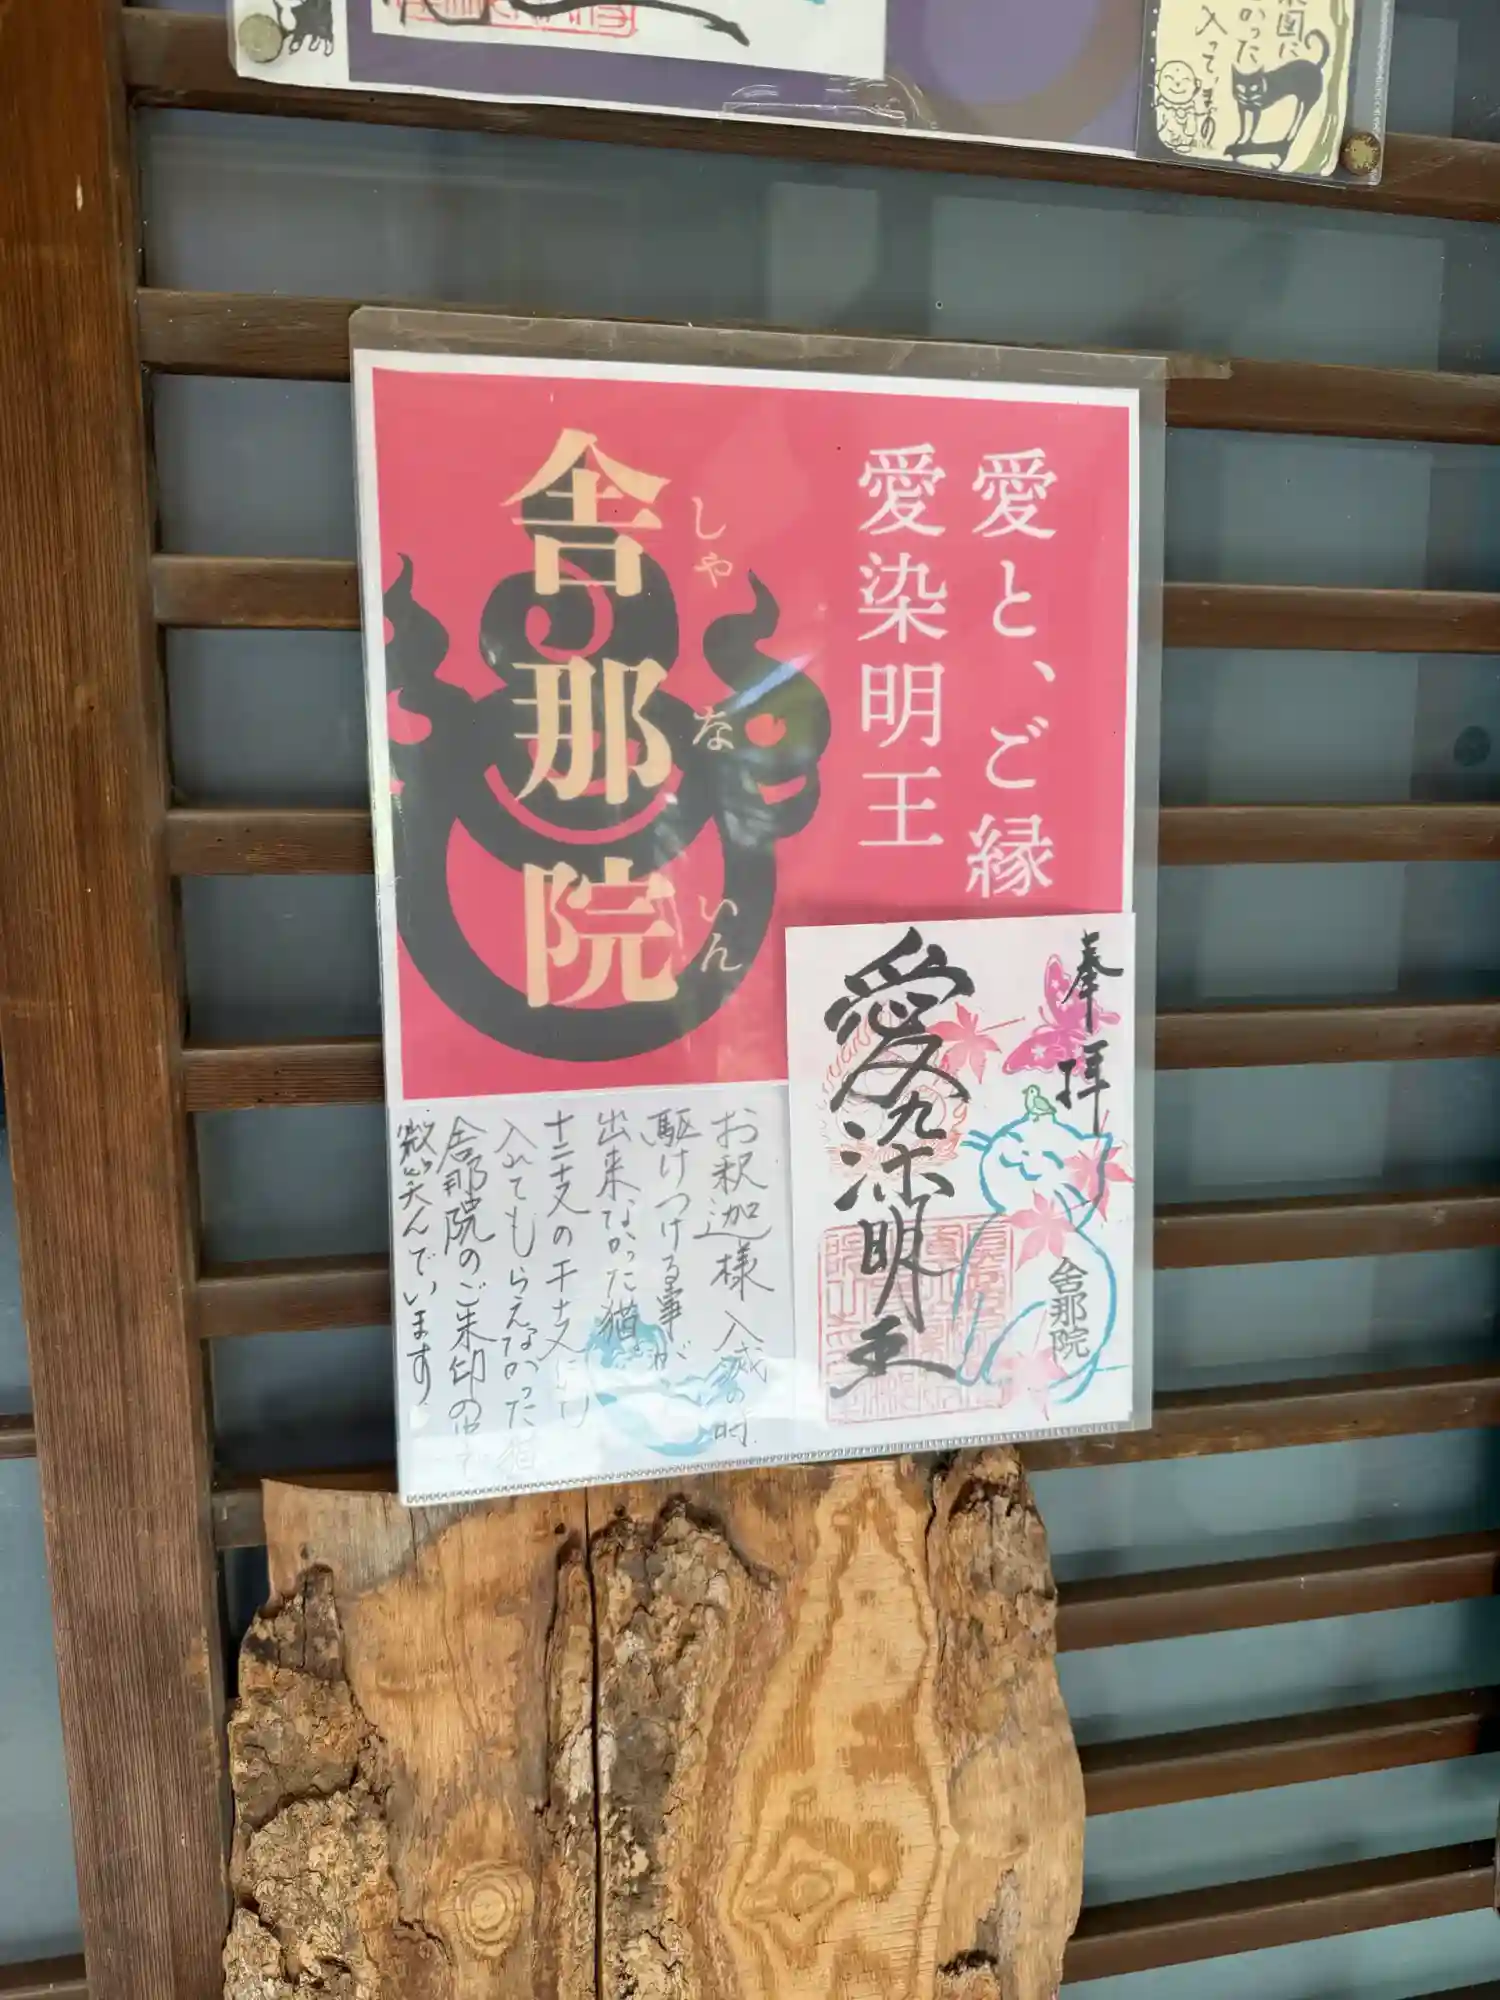 入って、ます
愛と、ご縁
愛染明王
舎那院
しゃないん
奉拝
愛染明王
舎那院
お釈迦様入滅の時
駆けつける事が
出来なかった猫
十二支の干支に
入れてもらえなかった猫
舎那院のご朱印の中で
微笑んでいます